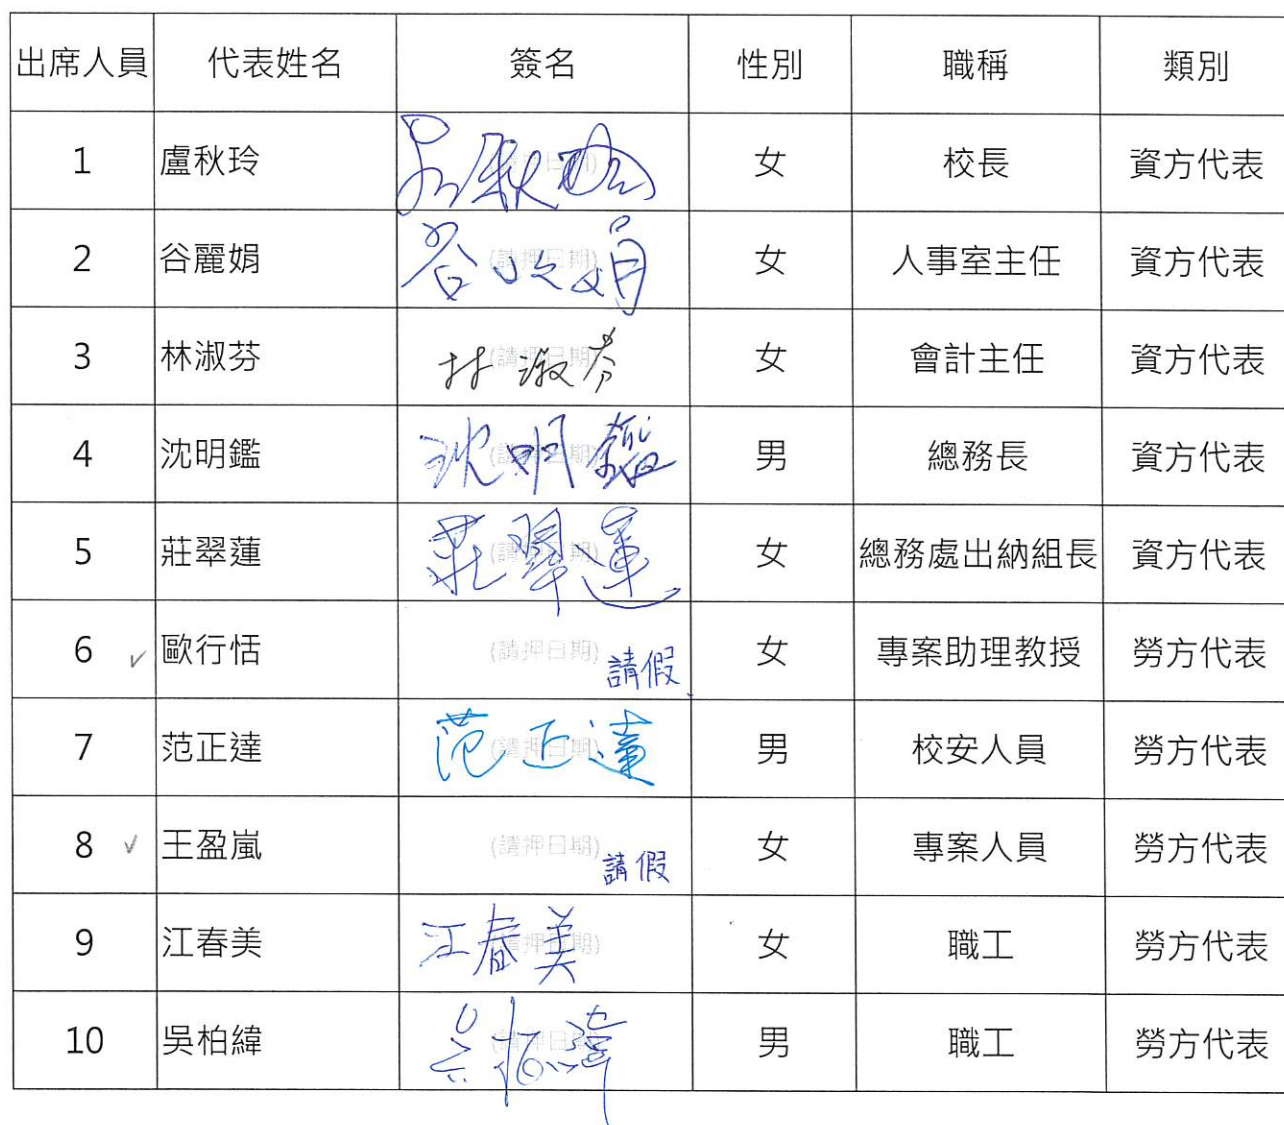 出席人員 代表姓名 簽名 性別 職稱 類別
1 盧秋玲 女 校長 資方代表
2 谷麗娟 (請押日期) 女 人事室主任 資方代表
3 林淑芬 (請押日期) 林淑芬 女 會計主任 資方代表
4 沈明鑑 沈明鑑 男 總務長 資方代表
5 莊翠蓮 莊翠蓮 女 總務處出納組長 資方代表
6 歐行恬 (請押日期) 請假 女 專案助理教授 勞方代表
7 范正達 (請押日期) 范正達 男 校安人員 勞方代表
8 王盈嵐 (請押日期) 請假 女 專案人員 勞方代表
9 江春美 江春美 女 職工 勞方代表
10 吳柏緯 吳柏緯 男 職工 勞方代表